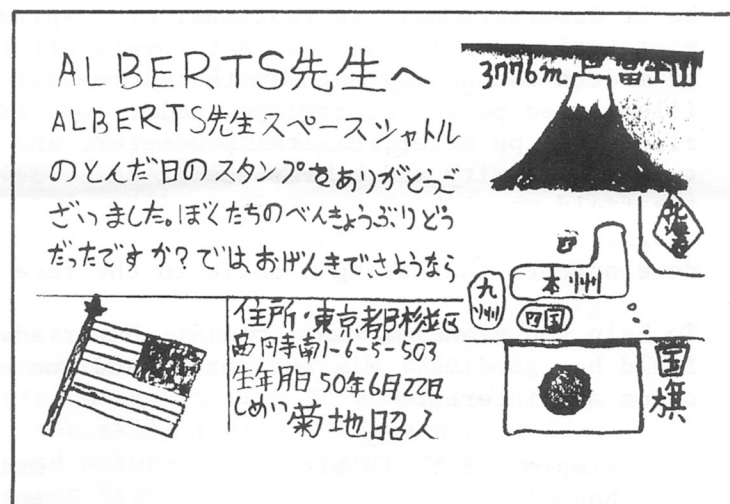 ALBERTS先生へ
ALBERTS先生スペースシャトル
のとんだ日のスタンプをありがとうご
ざいました。ぼくたちのべんきょうぶりどう
だったですか?では、おげんきでさようなら
3776m 富士山
北海道
本州
九州
四国
国旗
住所・東京都杉並区
高円寺南1-6-5-503
生年月日 50年6月22日
しめい 菊地昭人